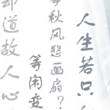 人生若只
事秋风悲画扇？
等闲变
却道故人心